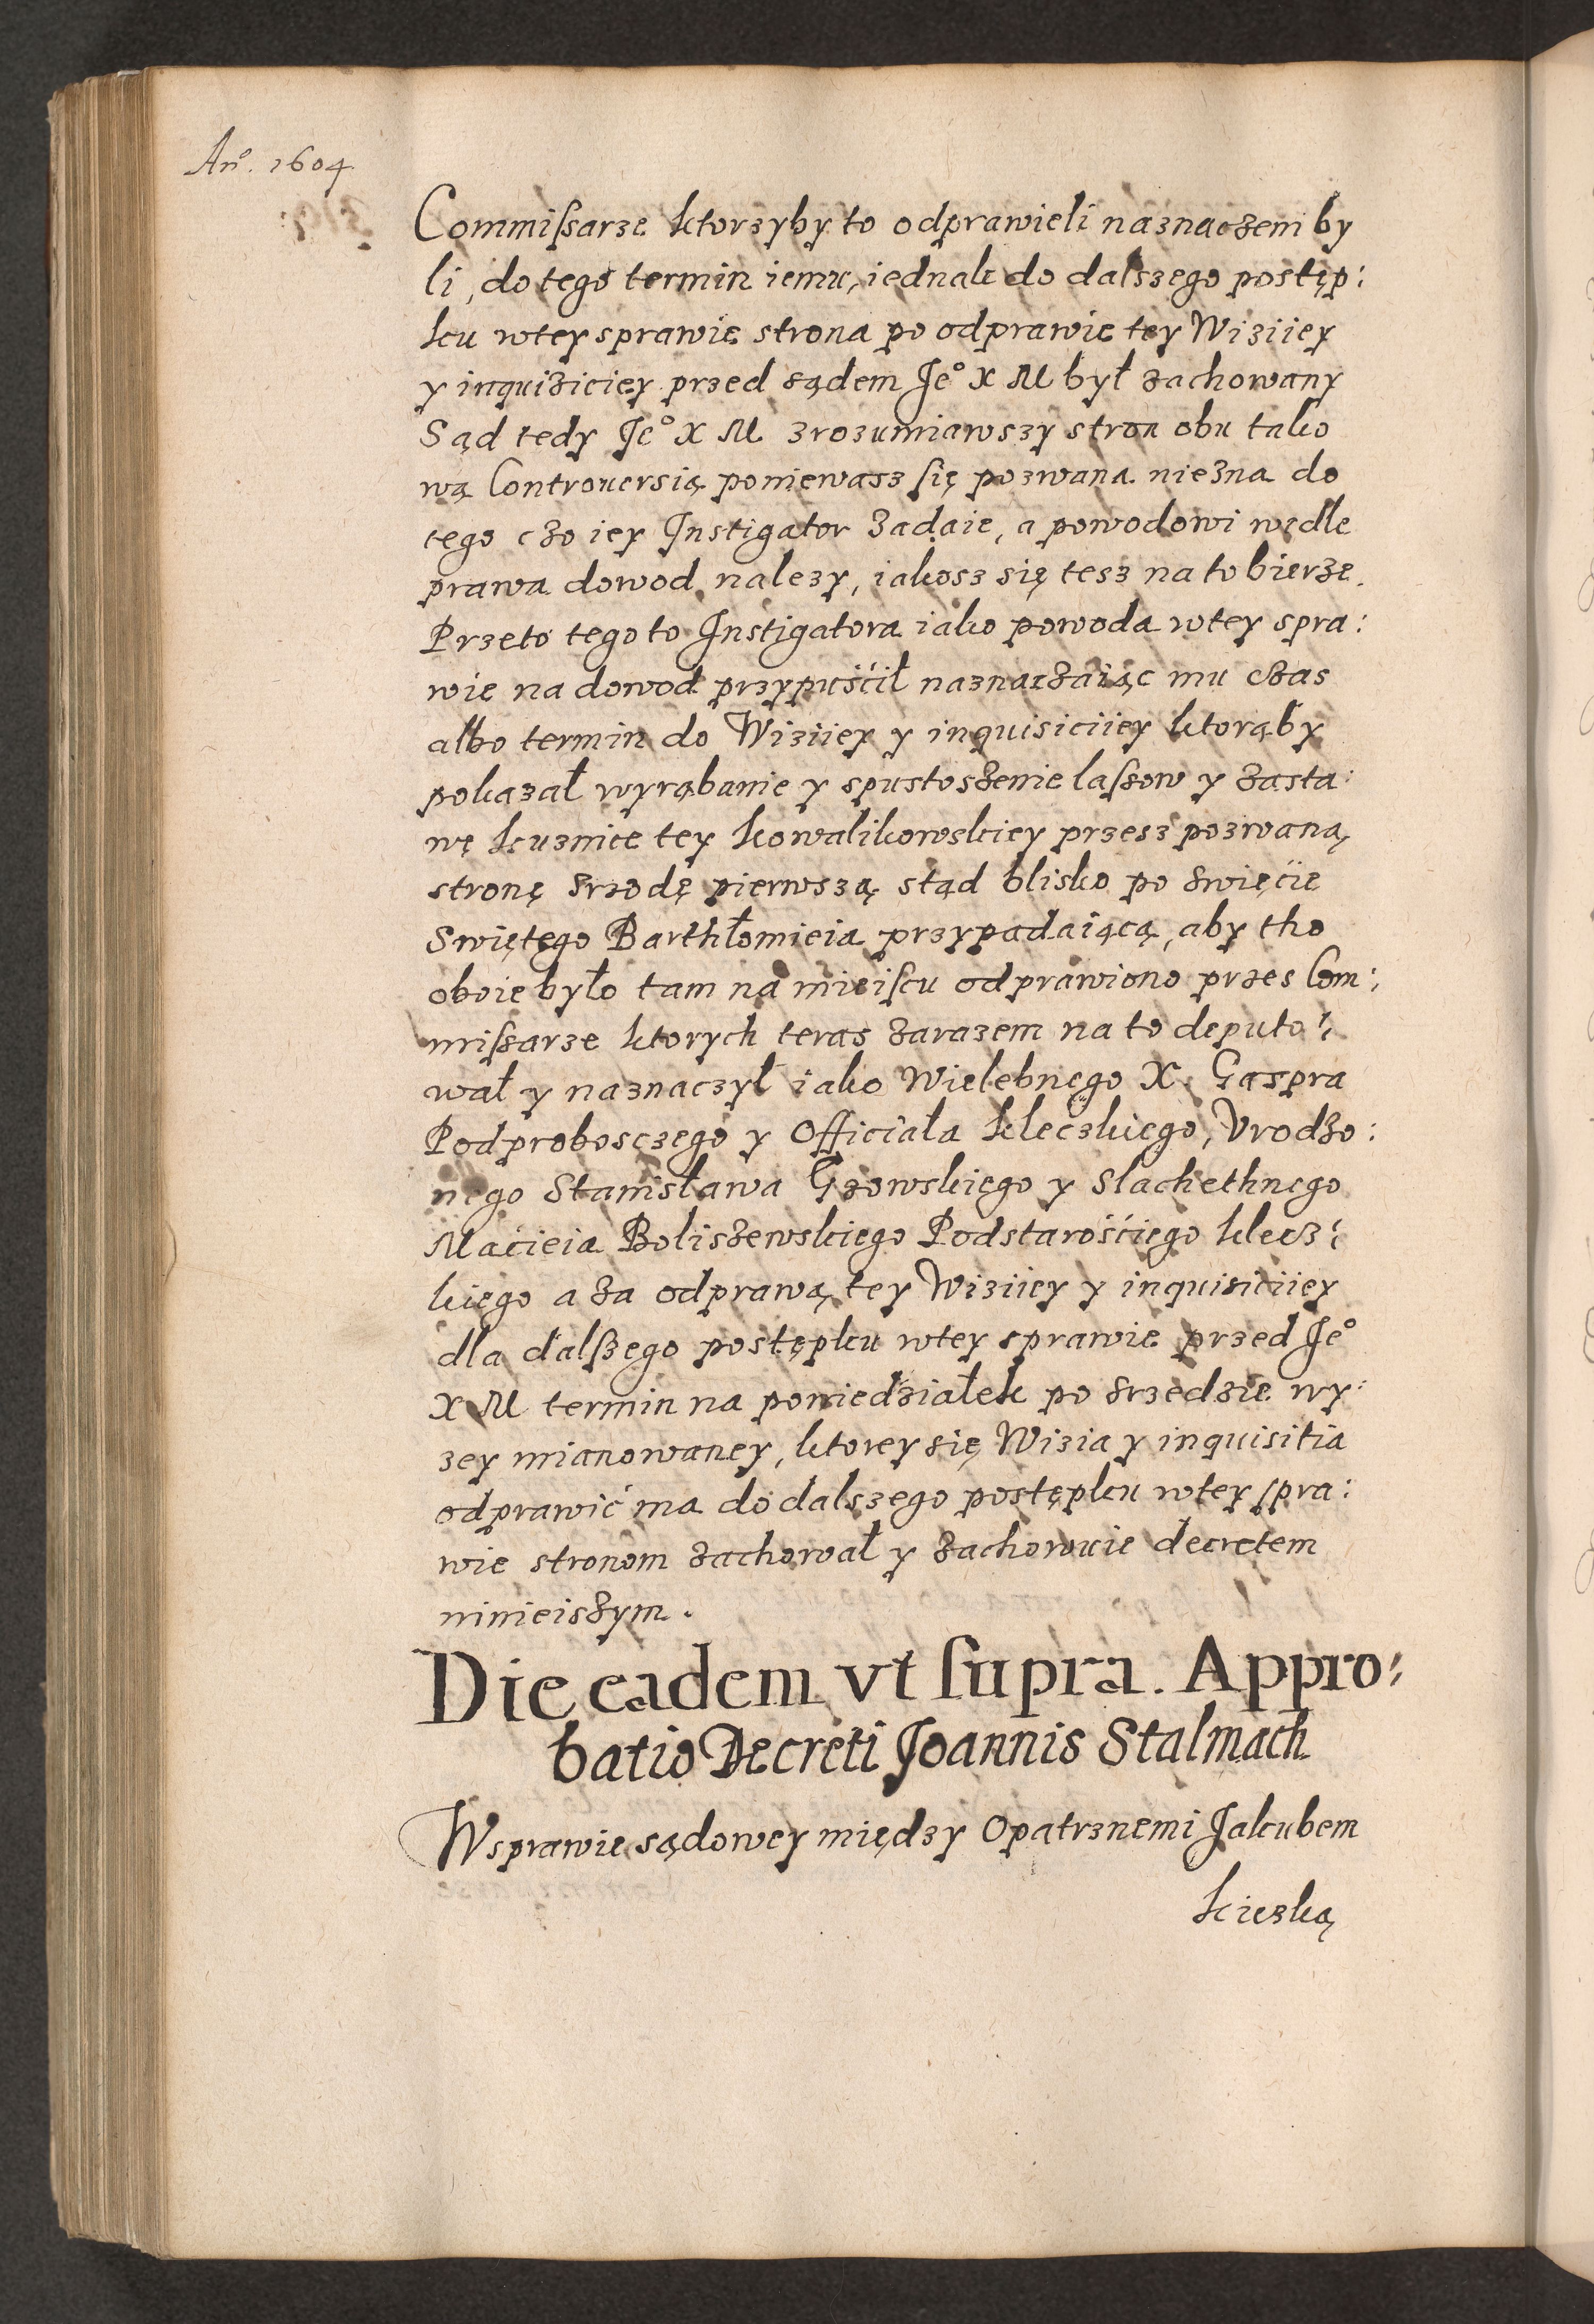 Anº. 1604
Commiſsarze ktorzyby to odprawieli naznaczem by
li, do tego termin iemu, iednak do dalszego postęp:
ku wtey sprawie strona po odprawie tey Wiziiey
y inquiziciey przed sądem Jeº X M był zachowany
Sąd tedy Jeº X M zrozumiawszy stron obu tako
wą Controuersią poniewasz ſię pozwana niezna do
tego czo iey Instigator zadaie, a powodowi wedle
prawa dowod nalezy, iakosz się tesz na to bierze.
Przeto tego to Instigatora iako powoda wtey spra:
wie na dowod przypuścił naznaczaiąc mu czas
albo termin do Wiziiey y inquisiciiey ktorąby
pokazał wyrąbanie y spustoszenie laſzow y zasta:
wę kuznice tey kowalikowskiey przesz pozwaną
stronę srzodę pierwszą stąd blisko po swięcie
Swiętego Barthłomieia przypadaiącą, aby tho
oboie było tam na mieiſcu odprawiono przes Com:
miſsarze ktorych teras zarazem na to deputo:
wał y naznaczył iako Wielebnego X. Gaspra
Podprobosczego y Officiała kleczkiego, Vrodzo:
nego Stanisława Gzowskiego y Slachethnego
Macieia Boliszewskiego Podstarościego klecz:
kiego a za odprawą tey Wiziiey y inquisiciiey
dla dalſzego postępku wtey sprawie przed Jeº
X M termin na poniedziałek po srzedzie wy:
zey mianowaney, ktorey się Wizia y inquisitia
odprawić ma do dalszego postępku wtey ſpra:
wie stronom zachował y zachowuie decretem
ninieiszym.
Die eadem vt ſupra. Appro:
batio Decreti Joannis Stalmach
Wsprawie sądowey między Opatrznemi Jakubem
kiezką